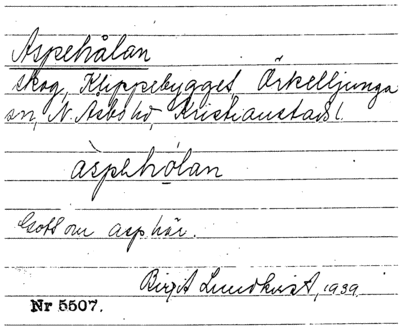 Aspehålan
skog, Klippebygget, Örkelljunga
sn, N. Åsbo hd, Kristianstads l.
àspehọlan
Gott om asp här.
Birgit Lundkvist, 1939.
Nr 5507.